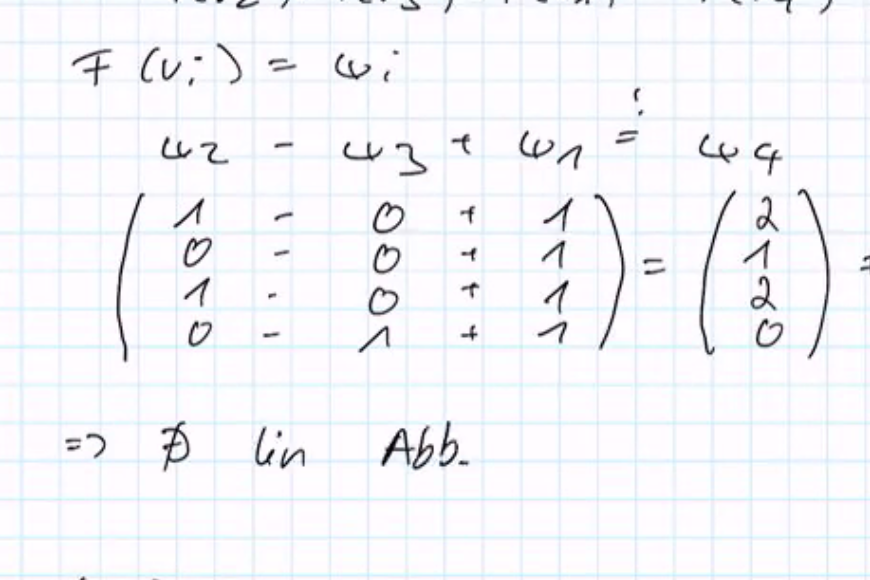 F (vi) = wi
w2 - w3 + w1 =! w4
( 1 - 0 + 1 ) = ( 2 ) =
0 - 0 + 1 1
1 - 0 + 1 2
0 - 1 + 1 0
=> ∄ lin Abb.